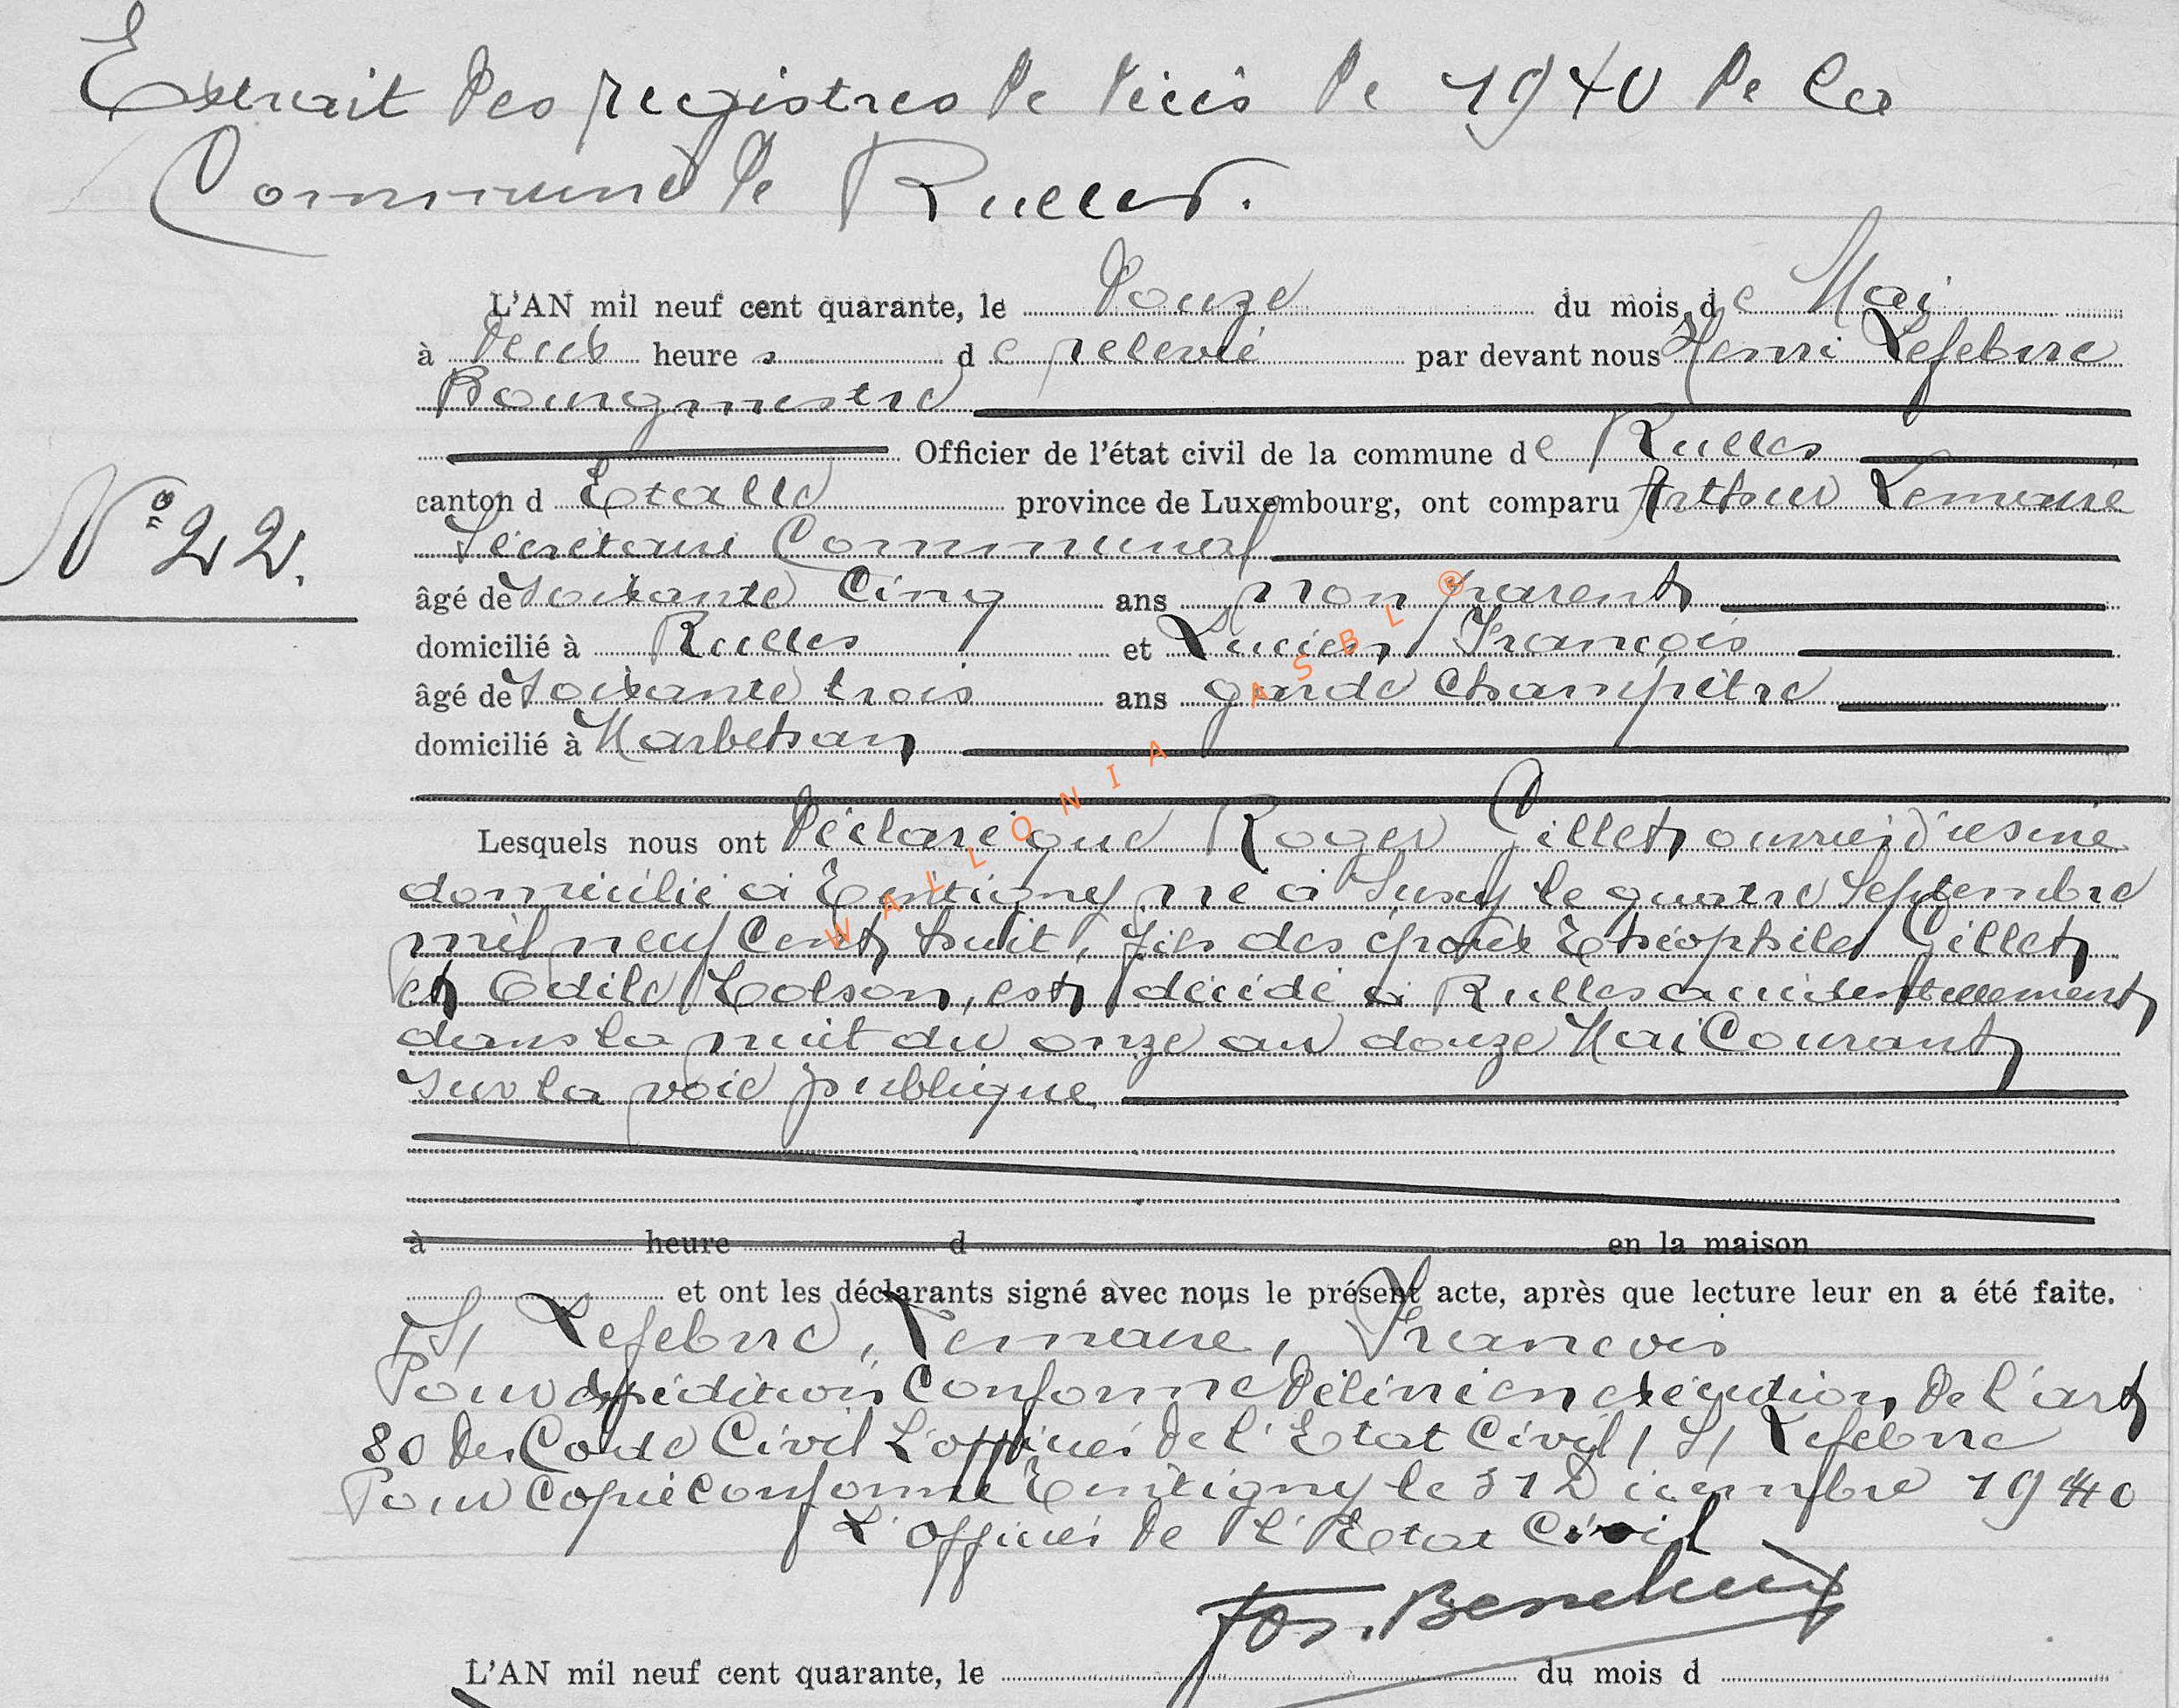 Extrait des registres de décès de 1940 de la
Commune de Rulles.
L'AN mil neuf cent quarante, le douze du mois de Mai
à deux heures de relevée par devant nous Henri Lefebvre
Bourgmestre
Officier de l'état civil de la commune de Rulles
canton d Etalle province de Luxembourg, ont comparu Arthur Lemaire
N° 22.
Sécrétaire Communal
âgé de soixante cinq ans non parent
domicilié à Rulles et Lucien François
âgé de soixante trois ans garde champêtre
domicilié à Marbehan
Lesquels nous ont déclaré que Roger Gillet, ouvrier d'usine
domicilié à Tintigny, né à Suxy le quatre Septembre
mil neuf cent huit, fils des époux Théophile Gillet
et Odile Colson, est décédé à Rulles accidentellement
dans la nuit du onze au douze Mai Courant
sur la voie publique.
à heure d en la maison
et ont les déclarants signé avec nous le présent acte, après que lecture leur en a été faite.
/S/ Lefebvre, Lemaire, François
Pour expédition conforme délivrée en exécution de l'art
80 du Code Civil L'officier de l'Etat Civil /S/ Lefebvre
Pour copie conforme Tintigny le 31 Décembre 1940
L'Officier de l'Etat Civil
Jos.
L'AN mil neuf cent quarante, le du mois d
WALLONIA ASBL ®